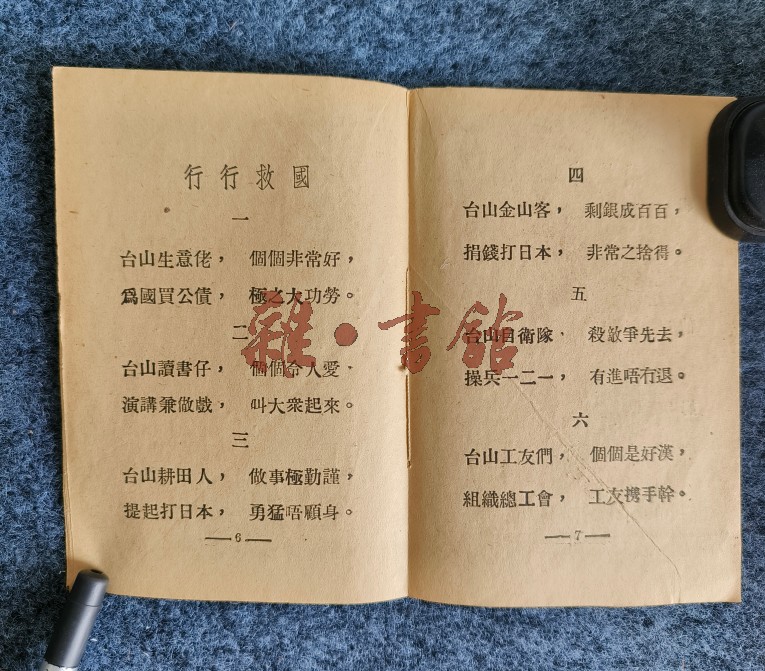 行行救國
一
台山生意佬， 個個非常好，
爲國買公債， 極之大功勞。
二
台山讀書仔， 個個令人愛，
演講兼做戲， 叫大衆起來。
三
台山耕田人， 做事極勤謹，
提起打日本， 勇猛唔顧身。
6
四
台山金山客， 剩銀成百百，
捐錢打日本， 非常之捨得。
五
台山自衛隊， 殺敵爭先去，
操兵一二一， 有進唔冇退。
六
台山工友們， 個個是好漢，
組織總工會， 工友携手幹。
7
雜·書館